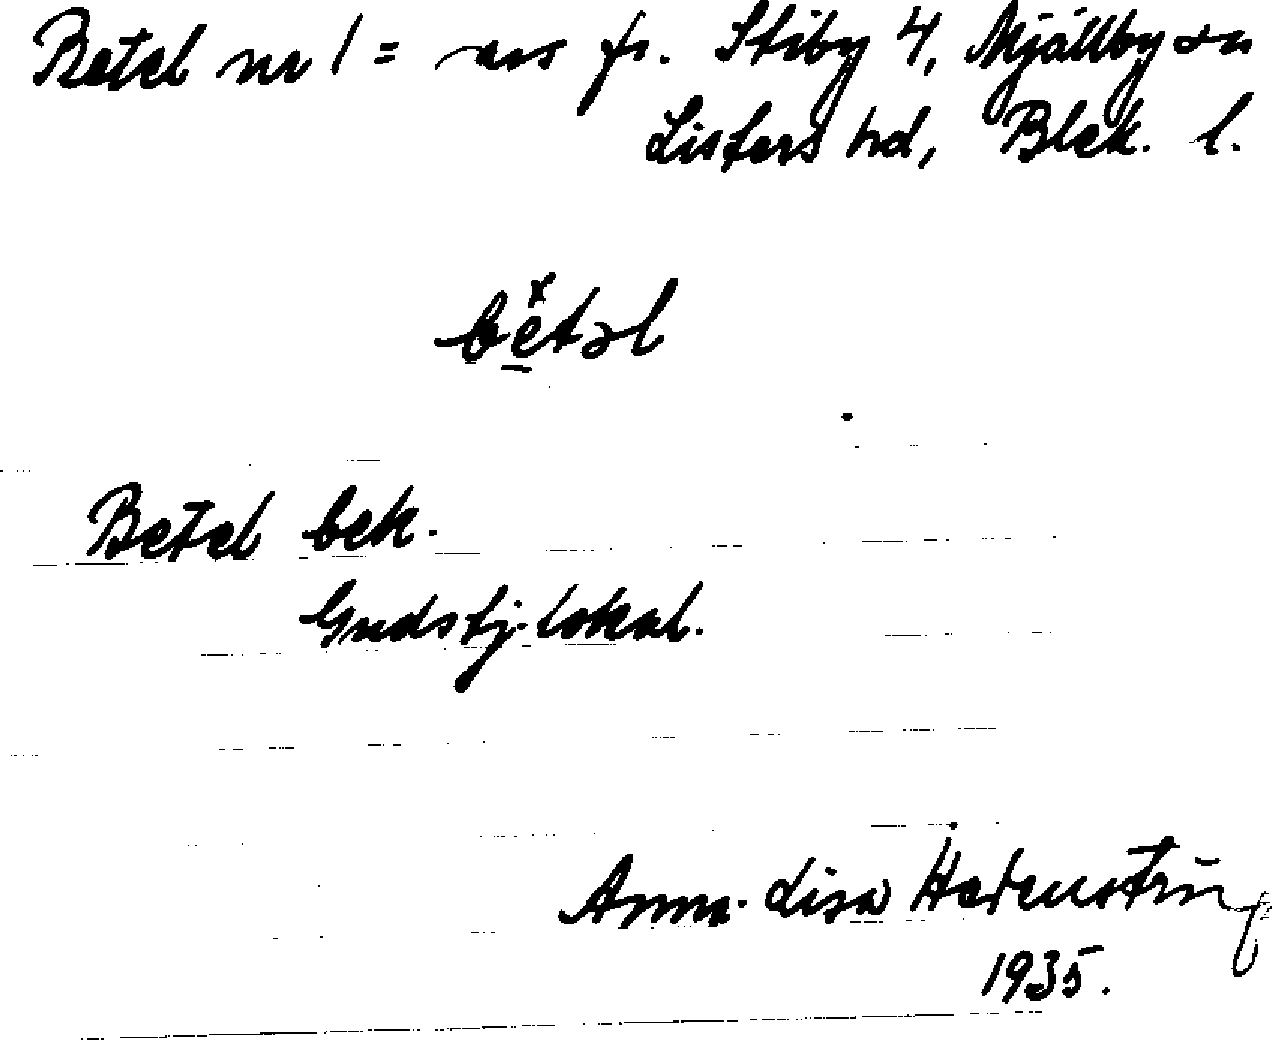 Betel nr 1 = avs fr. Stiby 4, Mjällby sn
Listers hd, Blek. l.
bètəl
Betel bek.
Gudstj. lokal.
Anna-Lisa
1935.